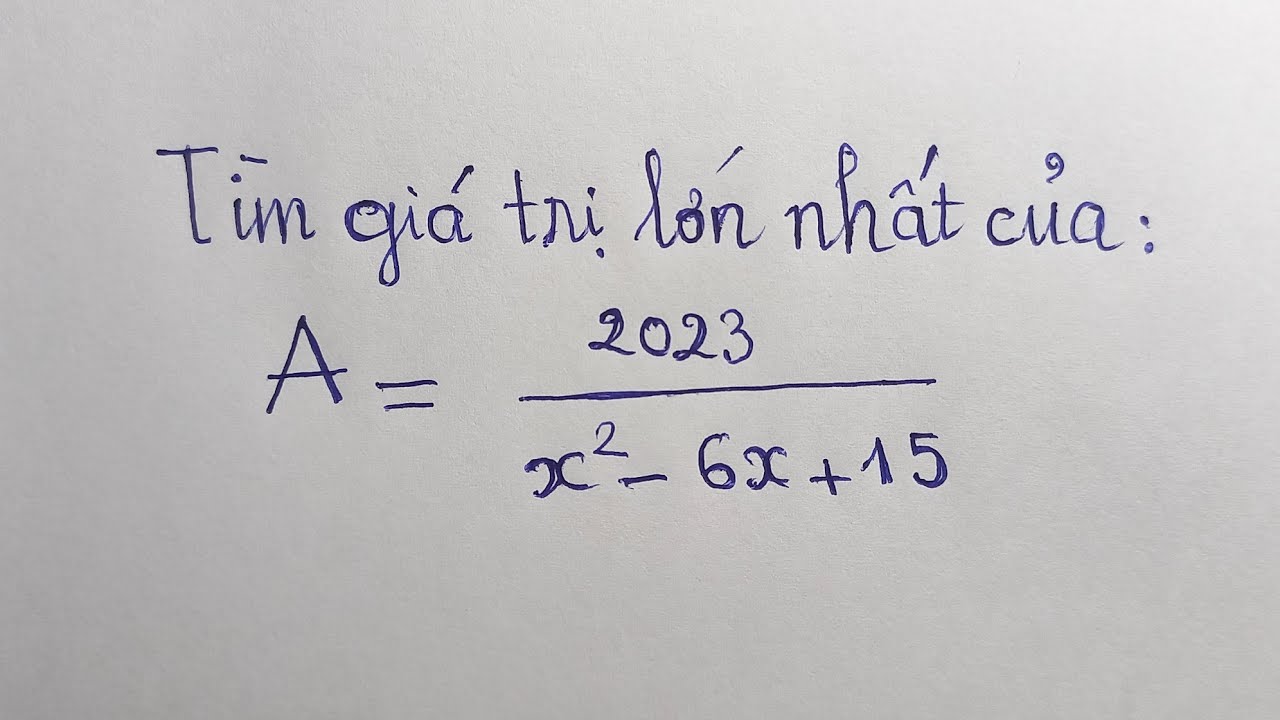 Tìm giá trị lớn nhất của:
A = 2023 / x² - 6x + 15